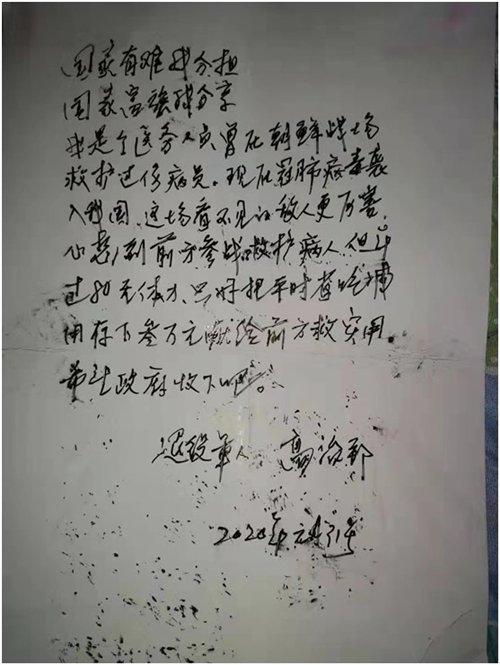 国家有难我分担
国家富强我分享
我是个医务人员曾在朝鲜战场
救护过伤病员。现在冠肺病毒袭
入我国,这场看不见的敌人更厉害,
心想到前方参战救护病人,但年
过80无体力,只好把平时省吃俭
用存下叁万元献给前方救灾用。
希望政府收下吧。
退役军人 高
2020年元月31号